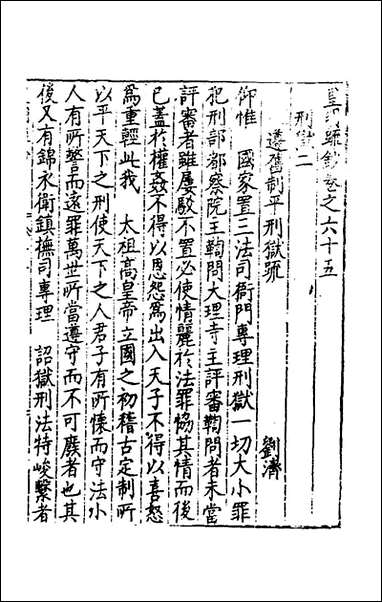 皇明疏鈔卷之六十五
刑獄二
遵舊制平刑獄疏
劉濟
仰惟 國家置三法司衙門專理刑獄一切大小罪
犯刑部都察院主鞫問大理寺主評審鞫問者未當
評審者雖屢駁不置必使情麗於法罪協其情而後
已蓋於權姦不得以恩怨爲出入天子不得以喜怒
爲重輕此我 太祖高皇帝立國之初稽古定制所
以平天下之刑使天下之人君子有所懷而守法小
人有所警而遠罪萬世所當遵守而不可廢者也其
後又有錦衣衛鎮撫司專理 詔獄刑法特峻繫者